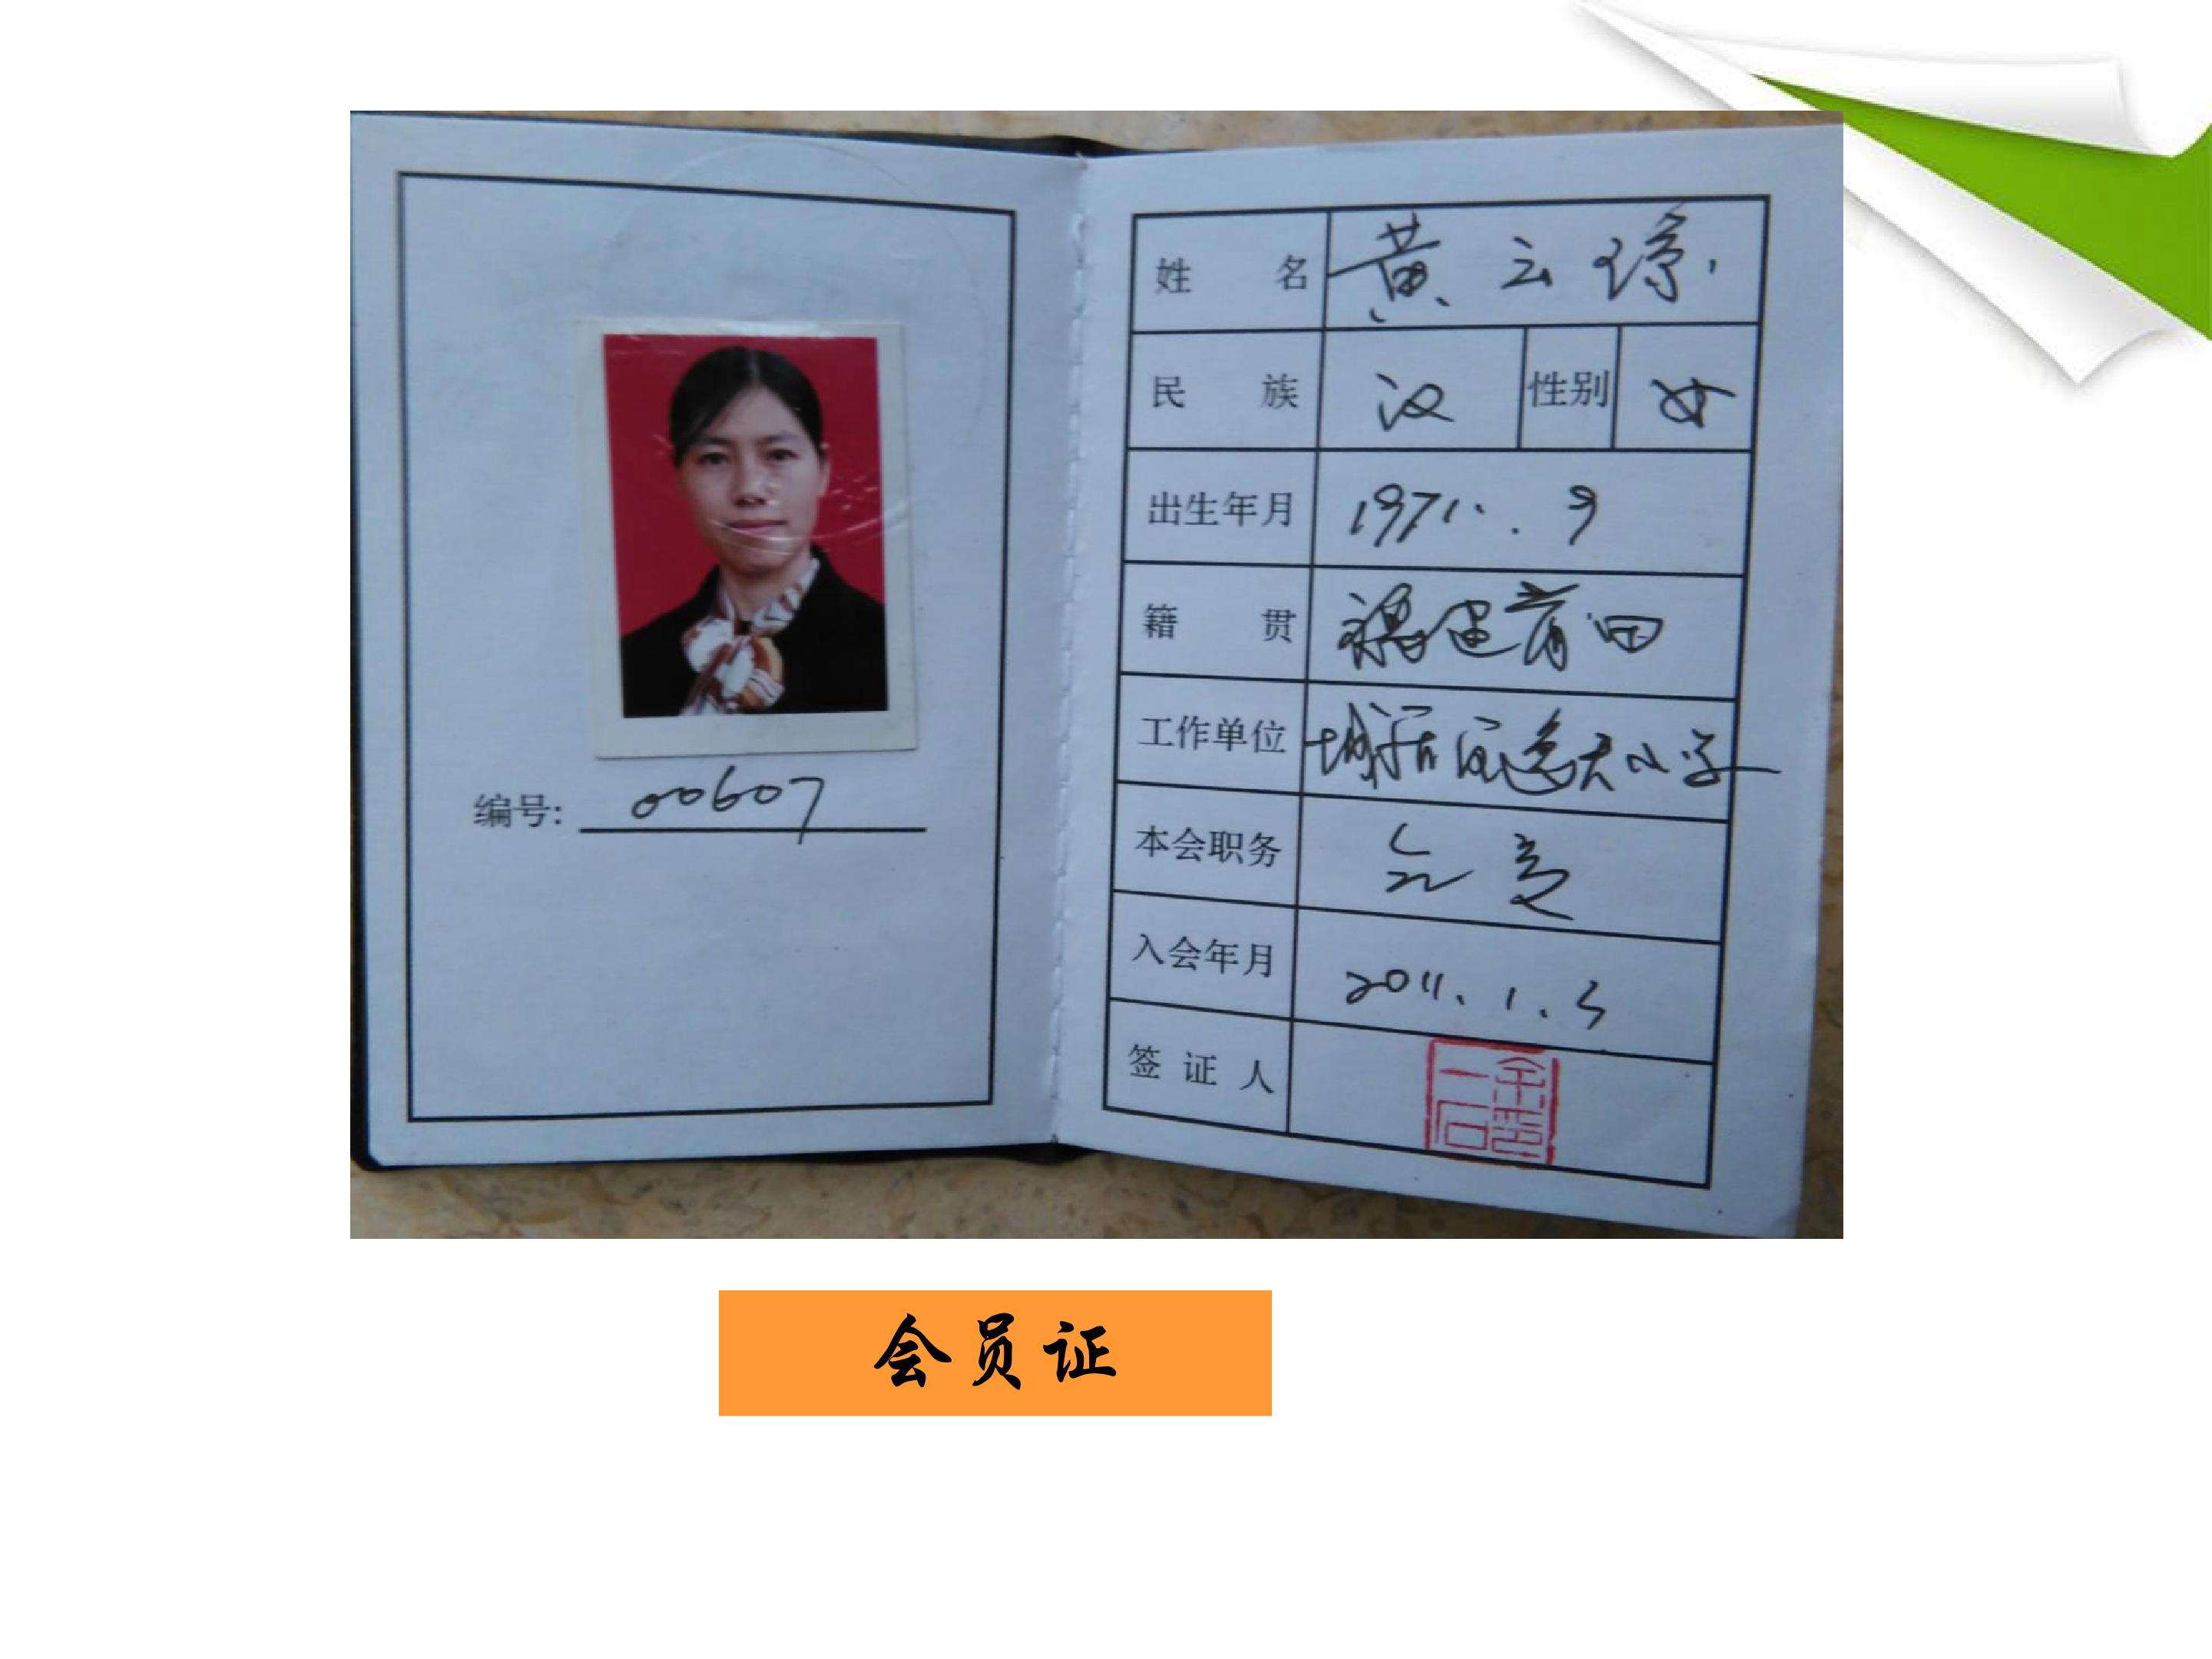 编号: 00607
姓名 黄云
民族 汉 性别 女
出生年月 1971. 9
籍贯 福建莆田
工作单位 城厢 小学
本会职务 会员
入会年月 2011.1.5
签证人
会员证